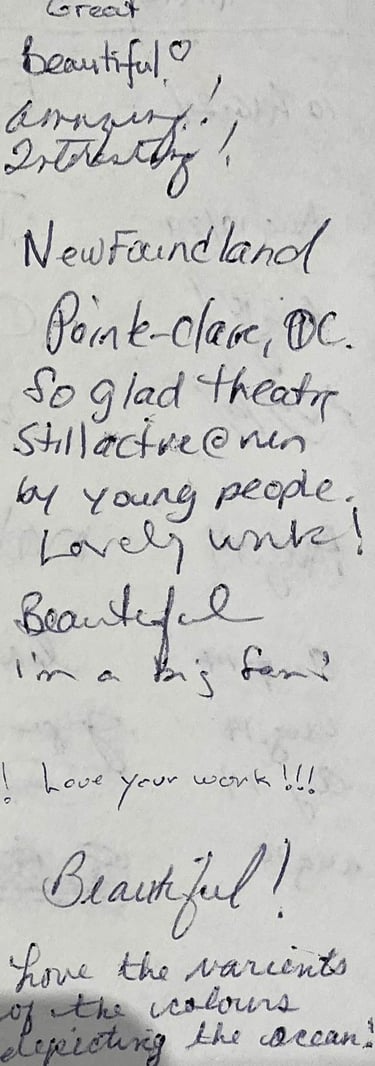 Great
Beautiful ♡
Amazing!
Interesting!
Newfoundland
Pointe-claire, QC.
So glad theatre
Still active @ run
by young people.
Lovely work!
Beautiful
I'm a big fan!
! Love your work!!!
Beautiful!
Love the varients
of the colours
depicting the ocean!